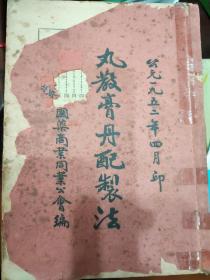 公元一九五三年四月印
丸散膏丹配製法
國藥商業同業公會編